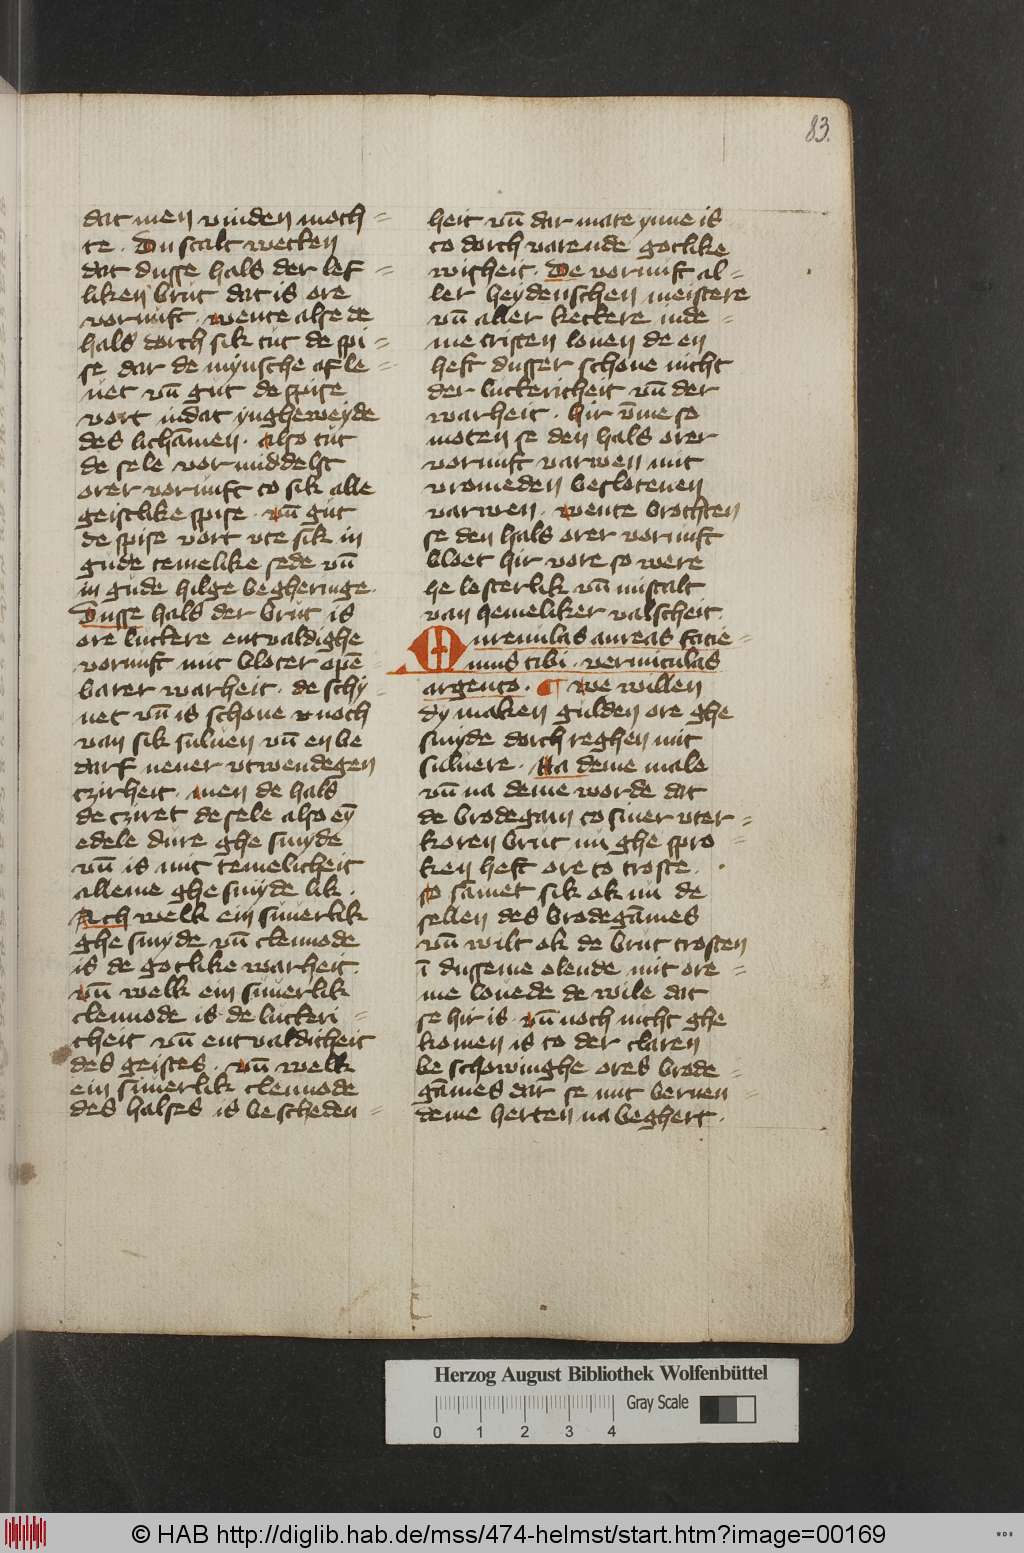 83.
dat men vinden moch=
te. Du scalt wecken
dat dusse hals der lef=
liken brut dat is ore
vornuft. wente alse de
hals dorch sik tut de spi=
se dar de mynsche af le=
uet vn̄ gut de spise
vort in dat yngheweyde
des lichāmen. also tut
de sele vormiddelst
orer vornuft to sik alle
geistlike spise. vn̄ gut
de spise vort vte sik in
gude temelike sede vn̄
in gude hilge begheringe.
Dusse hals der brut is
ore luttere entvaldighe
vornuft mit bloter opē=
barer warheit. de schy=
net vn̄ is schone vnoch
van sik suluen vn̄ en be
darf nener vtwendegen
czirheit. men de hals
de cziret de sele also eȳ
edele dure ghesmyde
vn̄ is mit temelicheit
alleme ghesmyde lik.
Ach welk ein suuerlik
ghesmyde vn̄ clenode
is de gotlike warheit.
vn̄ welk ein suuerlik
clennode is de lutteri=
cheit vn̄ entvaldicheit
des geistes. vn̄ welk
ein suuerlik clennode
des halses is bescheden=
heit vn̄ dar mate ynne is
to dorch varende gotlike
wisheit. De vornuft al=
ler heydenschen meistere
vn̄ aller kettere in de=
me cristen louen de en
heft dusser schone nicht
der luttericheit vn̄ der
warheit. hir v̄me so
moten se den hals orer
vornuft varwen mit
vromeden beslotenen
varwen. wente brochten
se den hals orer vornuft
bloet hir vore so were
he lesterlik vn̄ mistalt
van hemeliker valscheit.
Murenulas aureas facie=
mus tibi. vermiculas
argento. ¶ We willen
dy maken gulden ore ghe
smyde dorchreghen mit
suluere. Na deme male
vn̄ na deme worde dat
de brodegam to siner vter=
koren brut nu ghe spro=
ken heft ore to troste.
so samet sik ok nu de
sellen des brodegāmes
vn̄ wilt ok de brut trosten
ī dusseme elende mit ore=
me louede de wile dat
se hir is. vn̄ noch nicht ghe
komen is to der claren
beschowinghe ores brode=
gāmes dar se mit bernen=
deme herten na beghert.
Herzog August Bibliothek Wolfenbüttel
Gray Scale
0 1 2 3 4
© HAB http://diglib.hab.de/mss/474-helmst/start.htm?image=00169